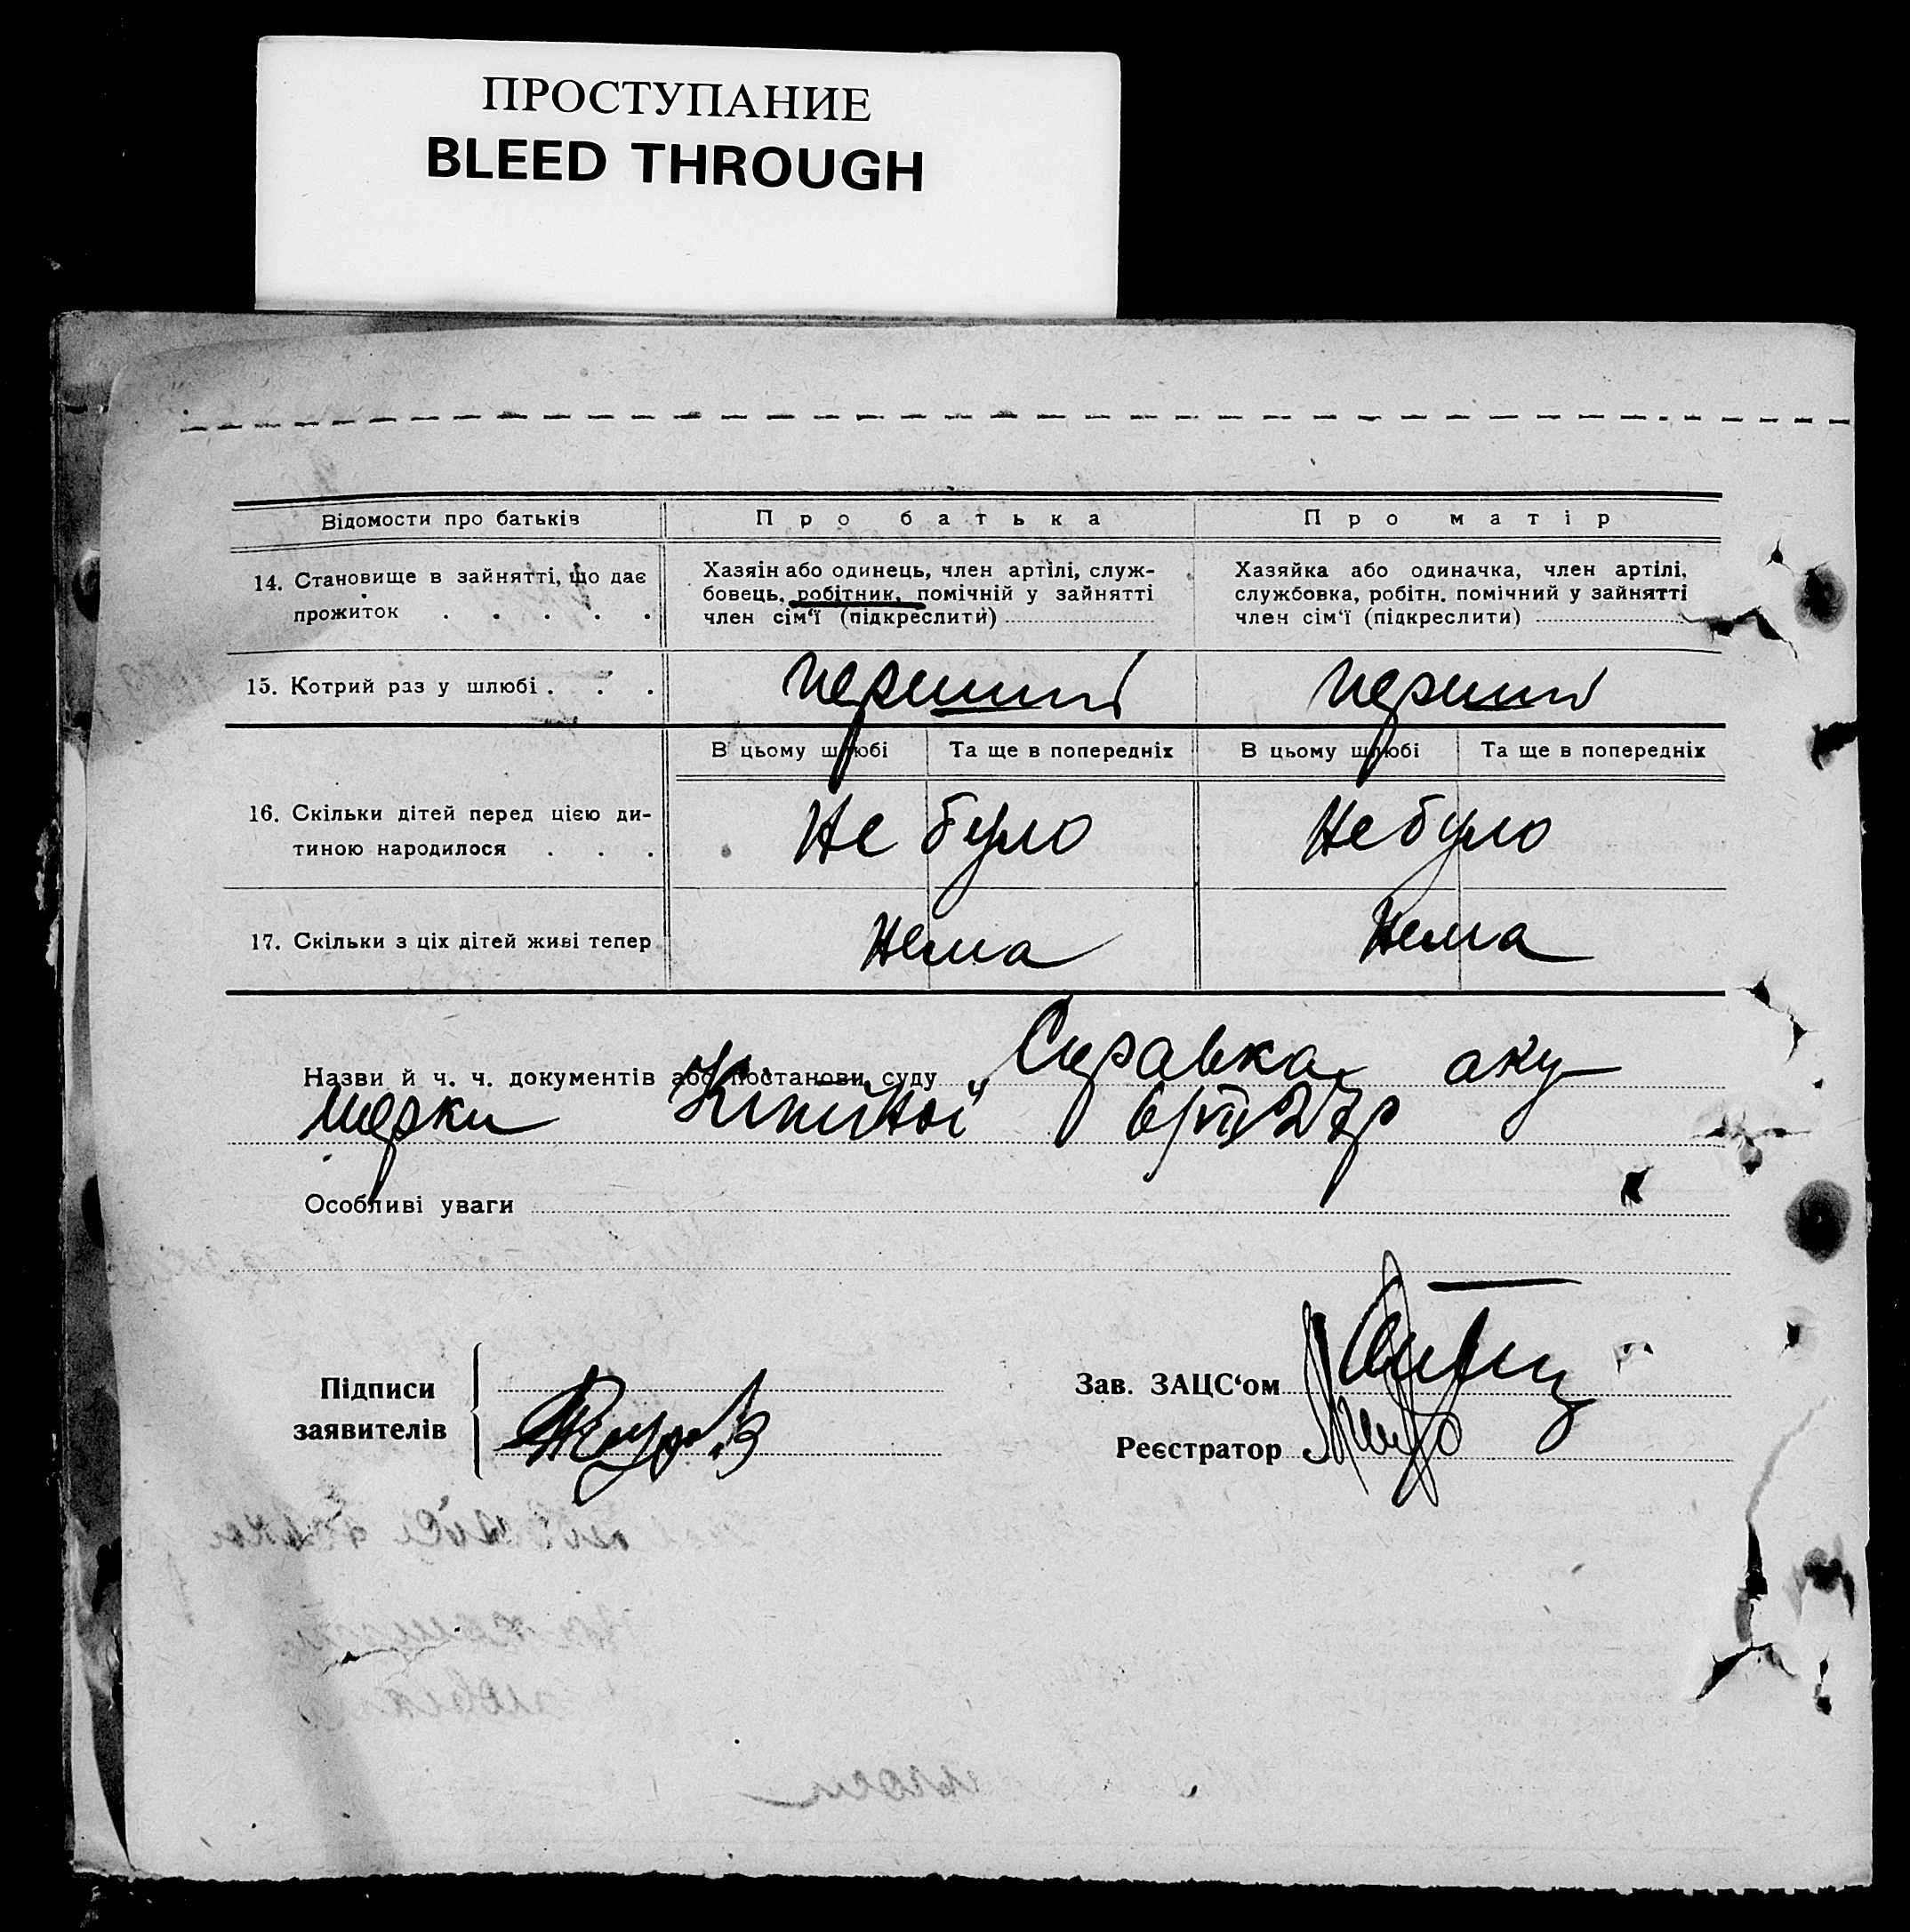 ПРОСТУПАНИЕ
BLEED THROUGH
Відомости про батьків
Про батька
Про матір
14. Становище в зайнятті, що дає
прожиток . . . . .
Хазяїн або одинець, член артілі, служ-
бовець, робітник, помічній у зайнятті
член сім‘ї (підкреслити)
Хазяйка або одиначка, член артілі,
службовка, робітн. помічний у зайнятті
член сім‘ї (підкреслити)
15. Котрий раз у шлюбі . . .
перший
перший
В цьому шлюбі
Та ще в попередніх
В цьому шлюбі
Та ще в попередніх
16. Скільки дітей перед цією ди-
тиною народилося . . .
Не було
Не було
17. Скільки з ціх дітей живі тепер
Нема
Нема
Назви й ч. ч. документів або постанови суду Справка аку
шерки 6/VII 27р
Особливі уваги
Підписи
заявителів
Зав. ЗАЦС‘ом
Реєстратор